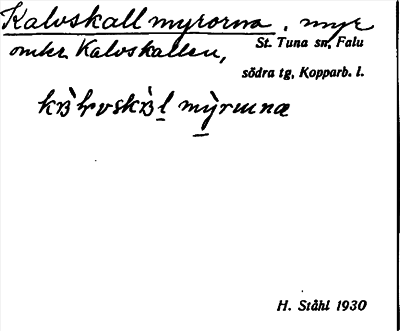 Kalvskallmyrorna, myr
omkr. Kalvskallen,
St. Tuna sn, Falu
södra tg, Kopparb. l.
H. Ståhl 1930